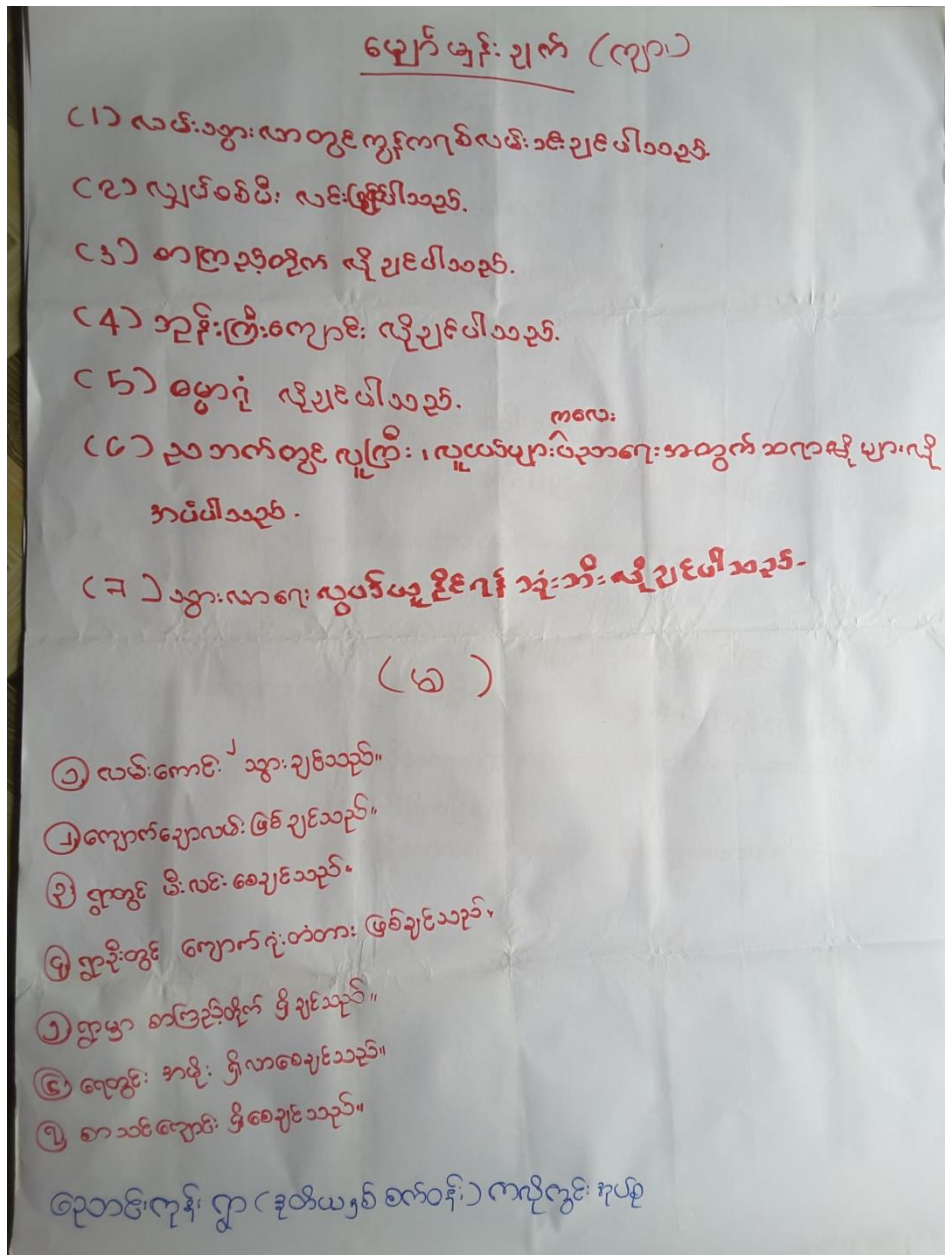 မျှော်မှန်းချက် (ကျား)
(1) လမ်းသွားလာတွင်ကွန်ကရစ်လမ်းခင်းချင်ပါသည်.
(2) လျှပ်စစ်မီး လင်းချင်ပါသည်.
(3) စာကြည့်တိုက် လိုချင်ပါသည်.
(4) ဘုန်းကြီးကျောင်း လိုချင်ပါသည်.
(5) ဓမ္မာရုံ လိုချင်ပါသည်.
ကလေး
(6) ညဘက်တွင် လူကြီး၊ လူငယ်များပညာရေးအတွက် ဆရာမများလို
အပ်ပါသည်.
(7) သွားလာရေး လွယ်ကူနိုင်ရန် သုံးဘီး လိုချင်ပါသည်.
(မ)
၁ လမ်းကောင်း သွားချင်သည်။
၂ ကျောက်ချောလမ်း ဖြစ်ချင်သည်။
၃ ရွာတွင် မီးလင်းစေချင်သည်။
၄ ရွာဦးတွင် ကျောက်ဂုံးတံတား ဖြစ်ချင်သည်။
၅ ရွာမှာ စာကြည့်တိုက် ရှိချင်သည်။
၆ ရေတွင်း အမိုး ရှိလာစေချင်သည်။
၇ စာသင်ကျောင်း ရှိစေချင်သည်။
ညောင်းကုန်း ရွာ (ဒုတိယနှစ် စက်ဝန်း) ကလိုကွင်း အုပ်စု